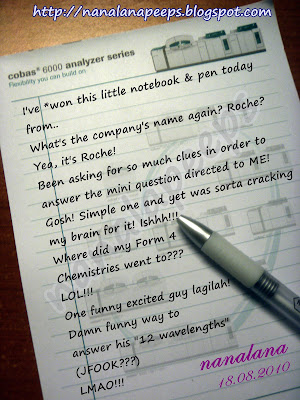 http://nanalanapeeps.blogspot.com
cobas® 6000 analyzer series
Flexibility you can build on
I've *won this little notebook & pen today
from..
What's the company's name again? Roche?
Yea, it's Roche!
Been asking for so much clues in order to
answer the mini question directed to ME!
Gosh! Simple one and yet was sorta cracking
my brain for it! Ishhh!!!
Where did my Form 4
Chemistries went to???
LOL!!!
One funny excited guy lagilah!
Damn funny way to
answer his "12 wavelengths"
(JFOOK???)
LMAO!!!
nanalana
18.08.2010